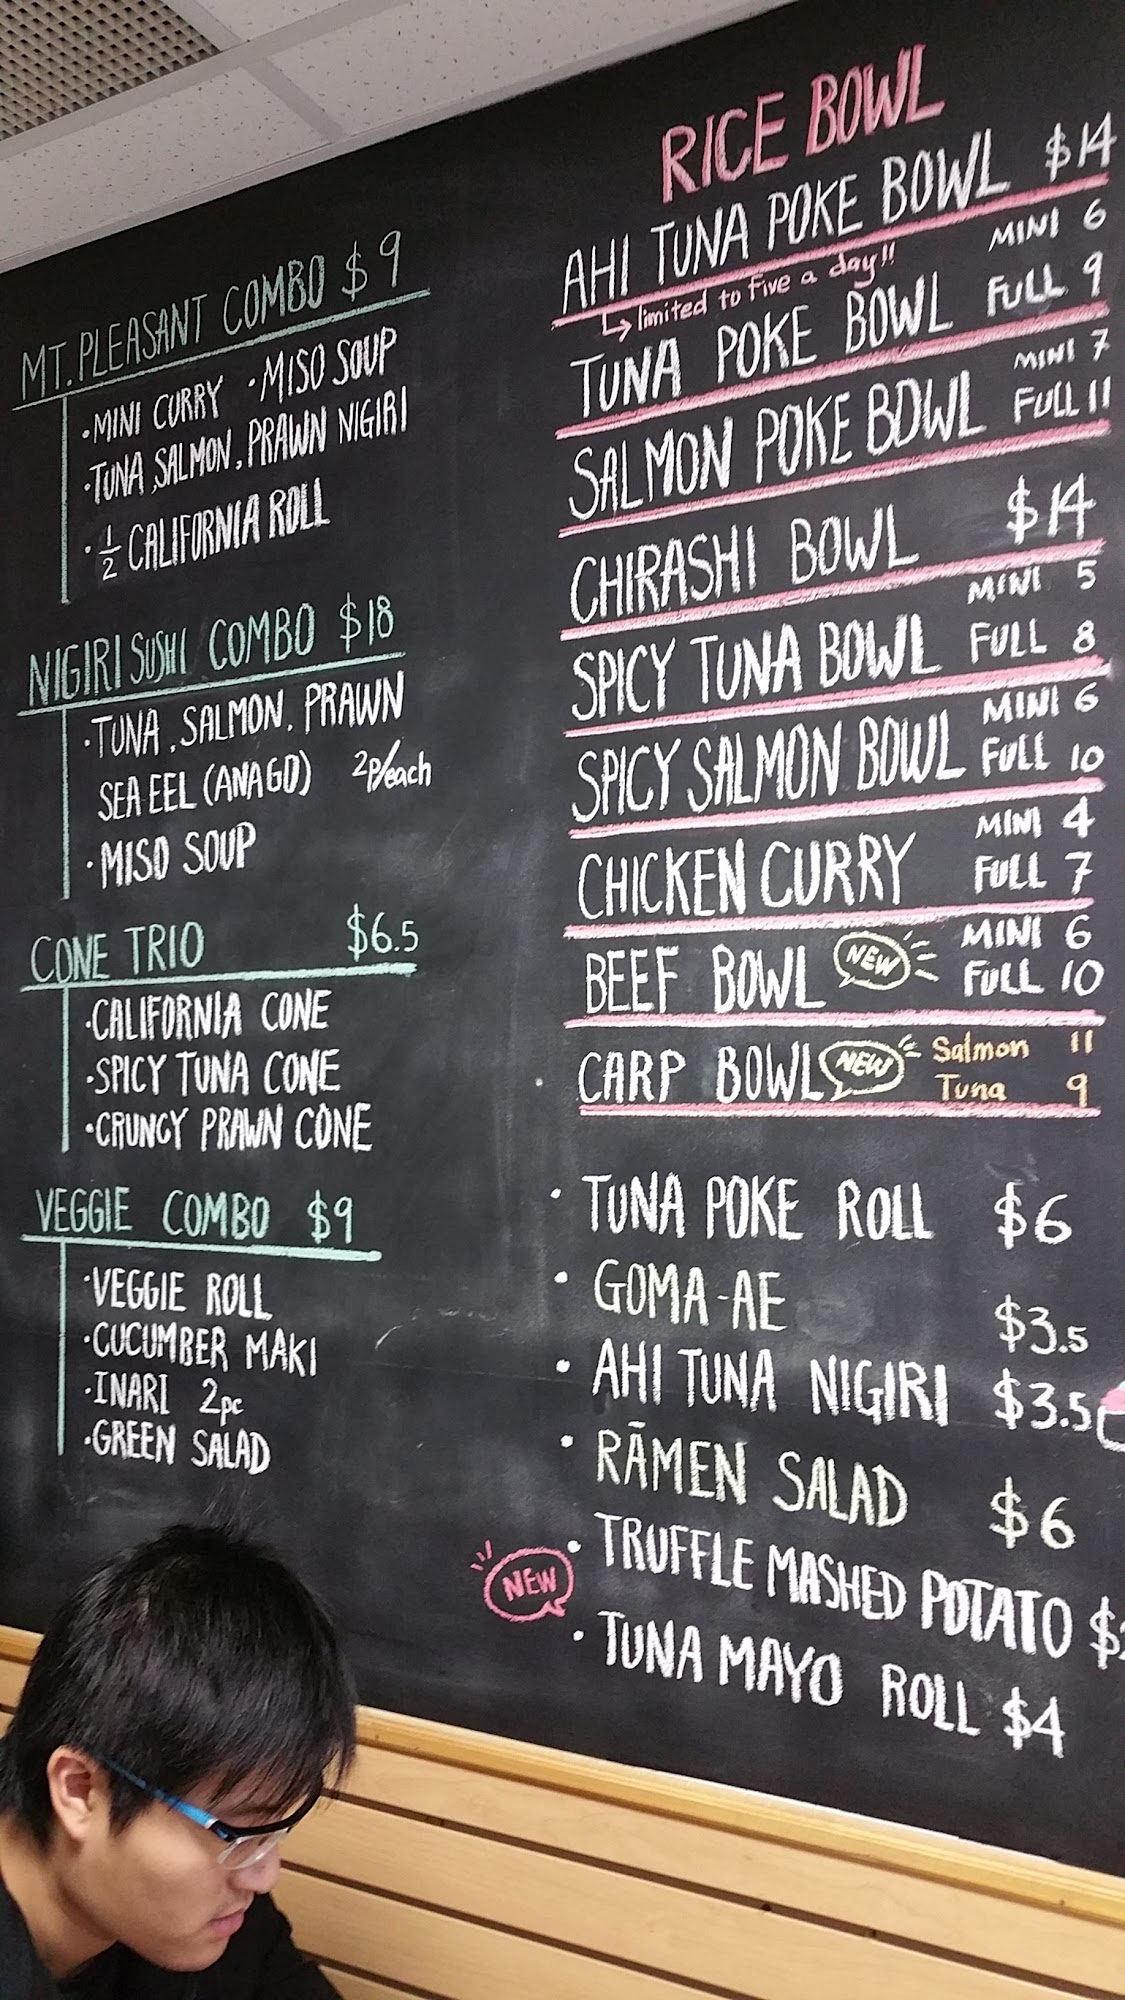 MT. PLEASANT COMBO $9
·MINI CURRY ·MISO SOUP
·TUNA, SALMON, PRAWN NIGIRI
·1/2 CALIFORNIA ROLL
NIGIRI SUSHI COMBO $18
·TUNA, SALMON, PRAWN
SEA EEL (ANAGO) 2p/each
·MISO SOUP
CONE TRIO $6.5
·CALIFORNIA CONE
·SPICY TUNA CONE
·CRUNCY PRAWN CONE
VEGGIE COMBO $9
·VEGGIE ROLL
·CUCUMBER MAKI
·INARI 2pc
·GREEN SALAD
RICE BOWL
AHI TUNA POKE BOWL $14
limited to five a day!!
MINI 6
TUNA POKE BOWL FULL 9
MINI 7
SALMON POKE BOWL FULL 11
CHIRASHI BOWL $14
MINI 5
SPICY TUNA BOWL FULL 8
MINI 6
SPICY SALMON BOWL FULL 10
MINI 4
CHICKEN CURRY FULL 7
MINI 6
BEEF BOWL NEW FULL 10
CARP BOWL NEW Salmon 11
Tuna 9
· TUNA POKE ROLL $6
· GOMA-AE $3.5
· AHI TUNA NIGIRI $3.5
· RĀMEN SALAD $6
· TRUFFLE MASHED POTATO $
NEW
· TUNA MAYO ROLL $4